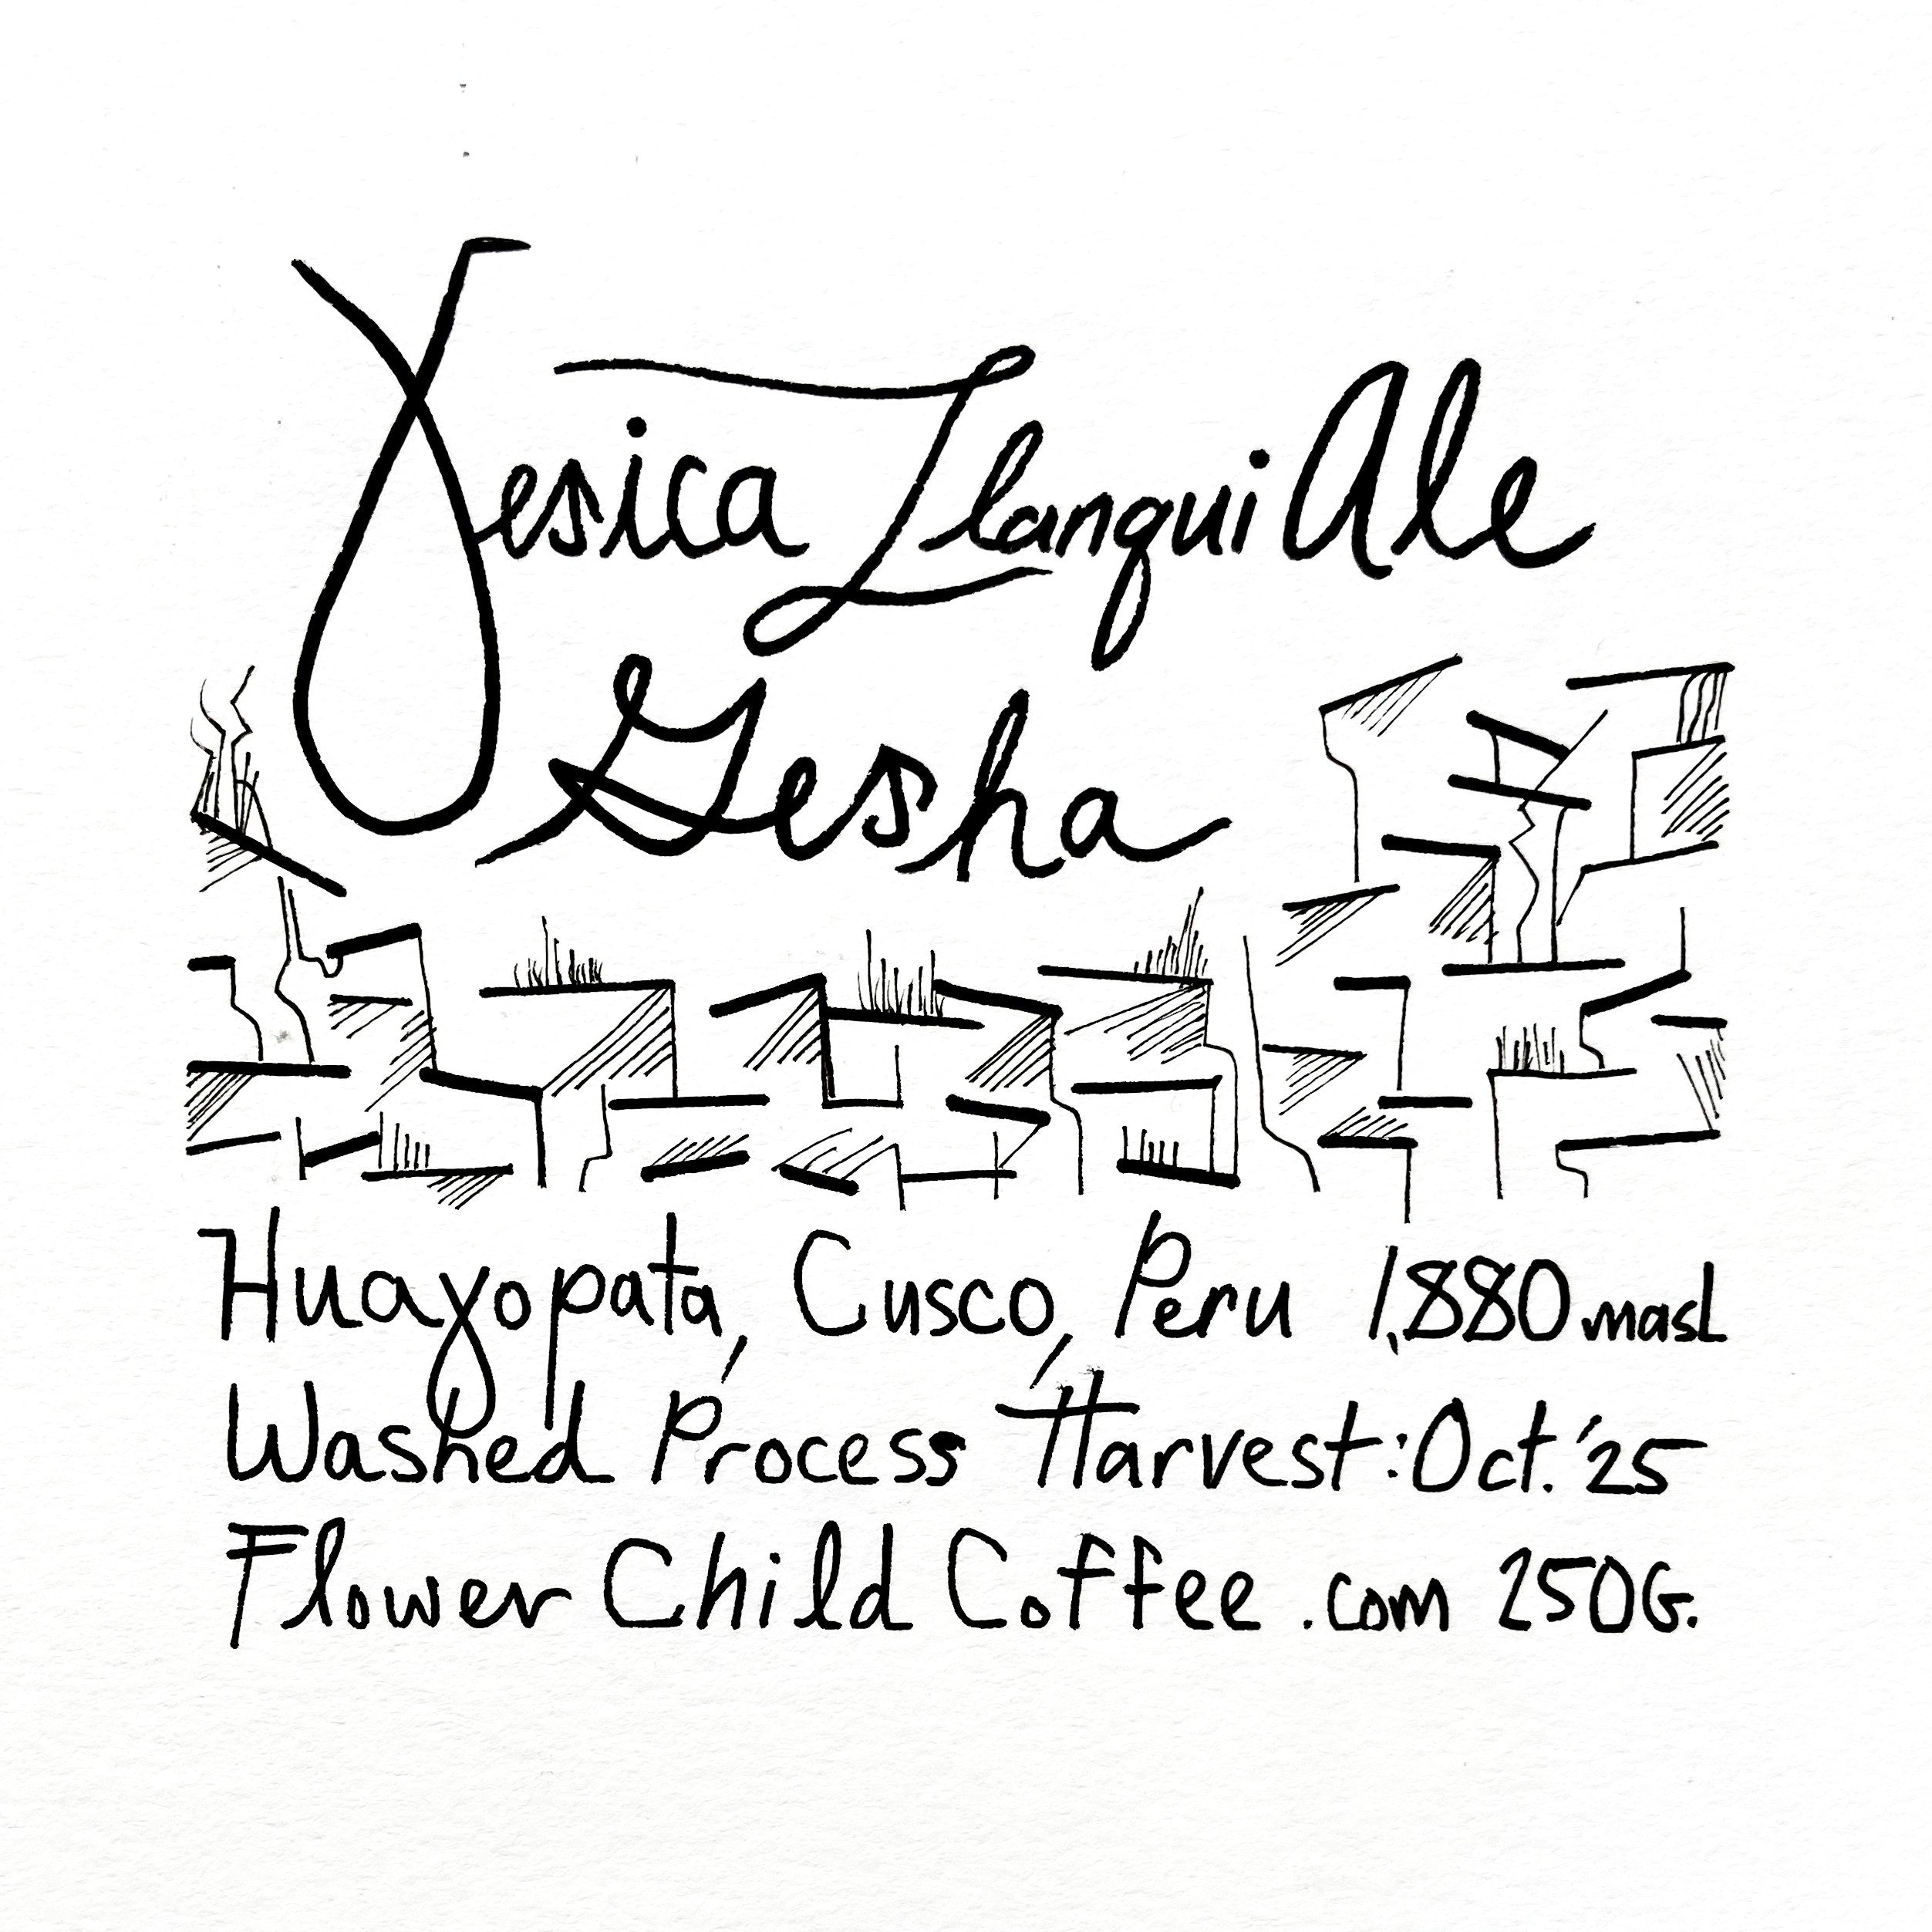 Yesica Llanqui Ale
Gesha
Huayopata, Cusco, Peru 1,880 masL
Washed Process Harvest: Oct. '25
Flower Child Coffee .com 250G.